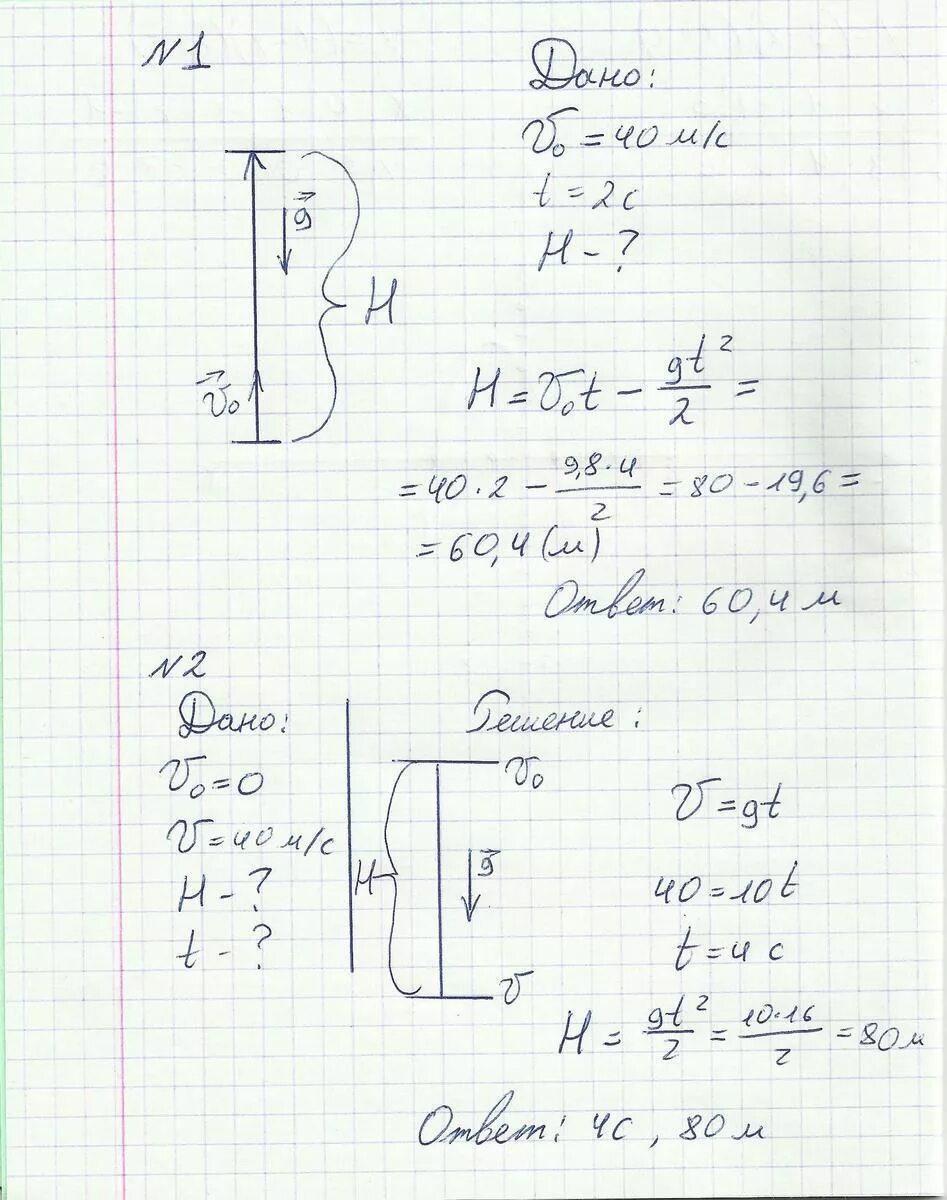 N1
Дано:
v₀ = 40 м/с
t = 2 с
H - ?
g⃗
H
v⃗₀
H = v₀t - gt²/2 =
= 40 · 2 - 9,8·4/2 = 80 - 19,6 =
= 60,4 (м)
Ответ: 60,4 м
N2
Дано:
v₀ = 0
v = 40 м/с
H - ?
t - ?
Решение:
v₀
H
g⃗
v
v = gt
40 = 10t
t = 4 с
H = gt²/2 = 10·16/2 = 80 м
Ответ: 4с, 80 м